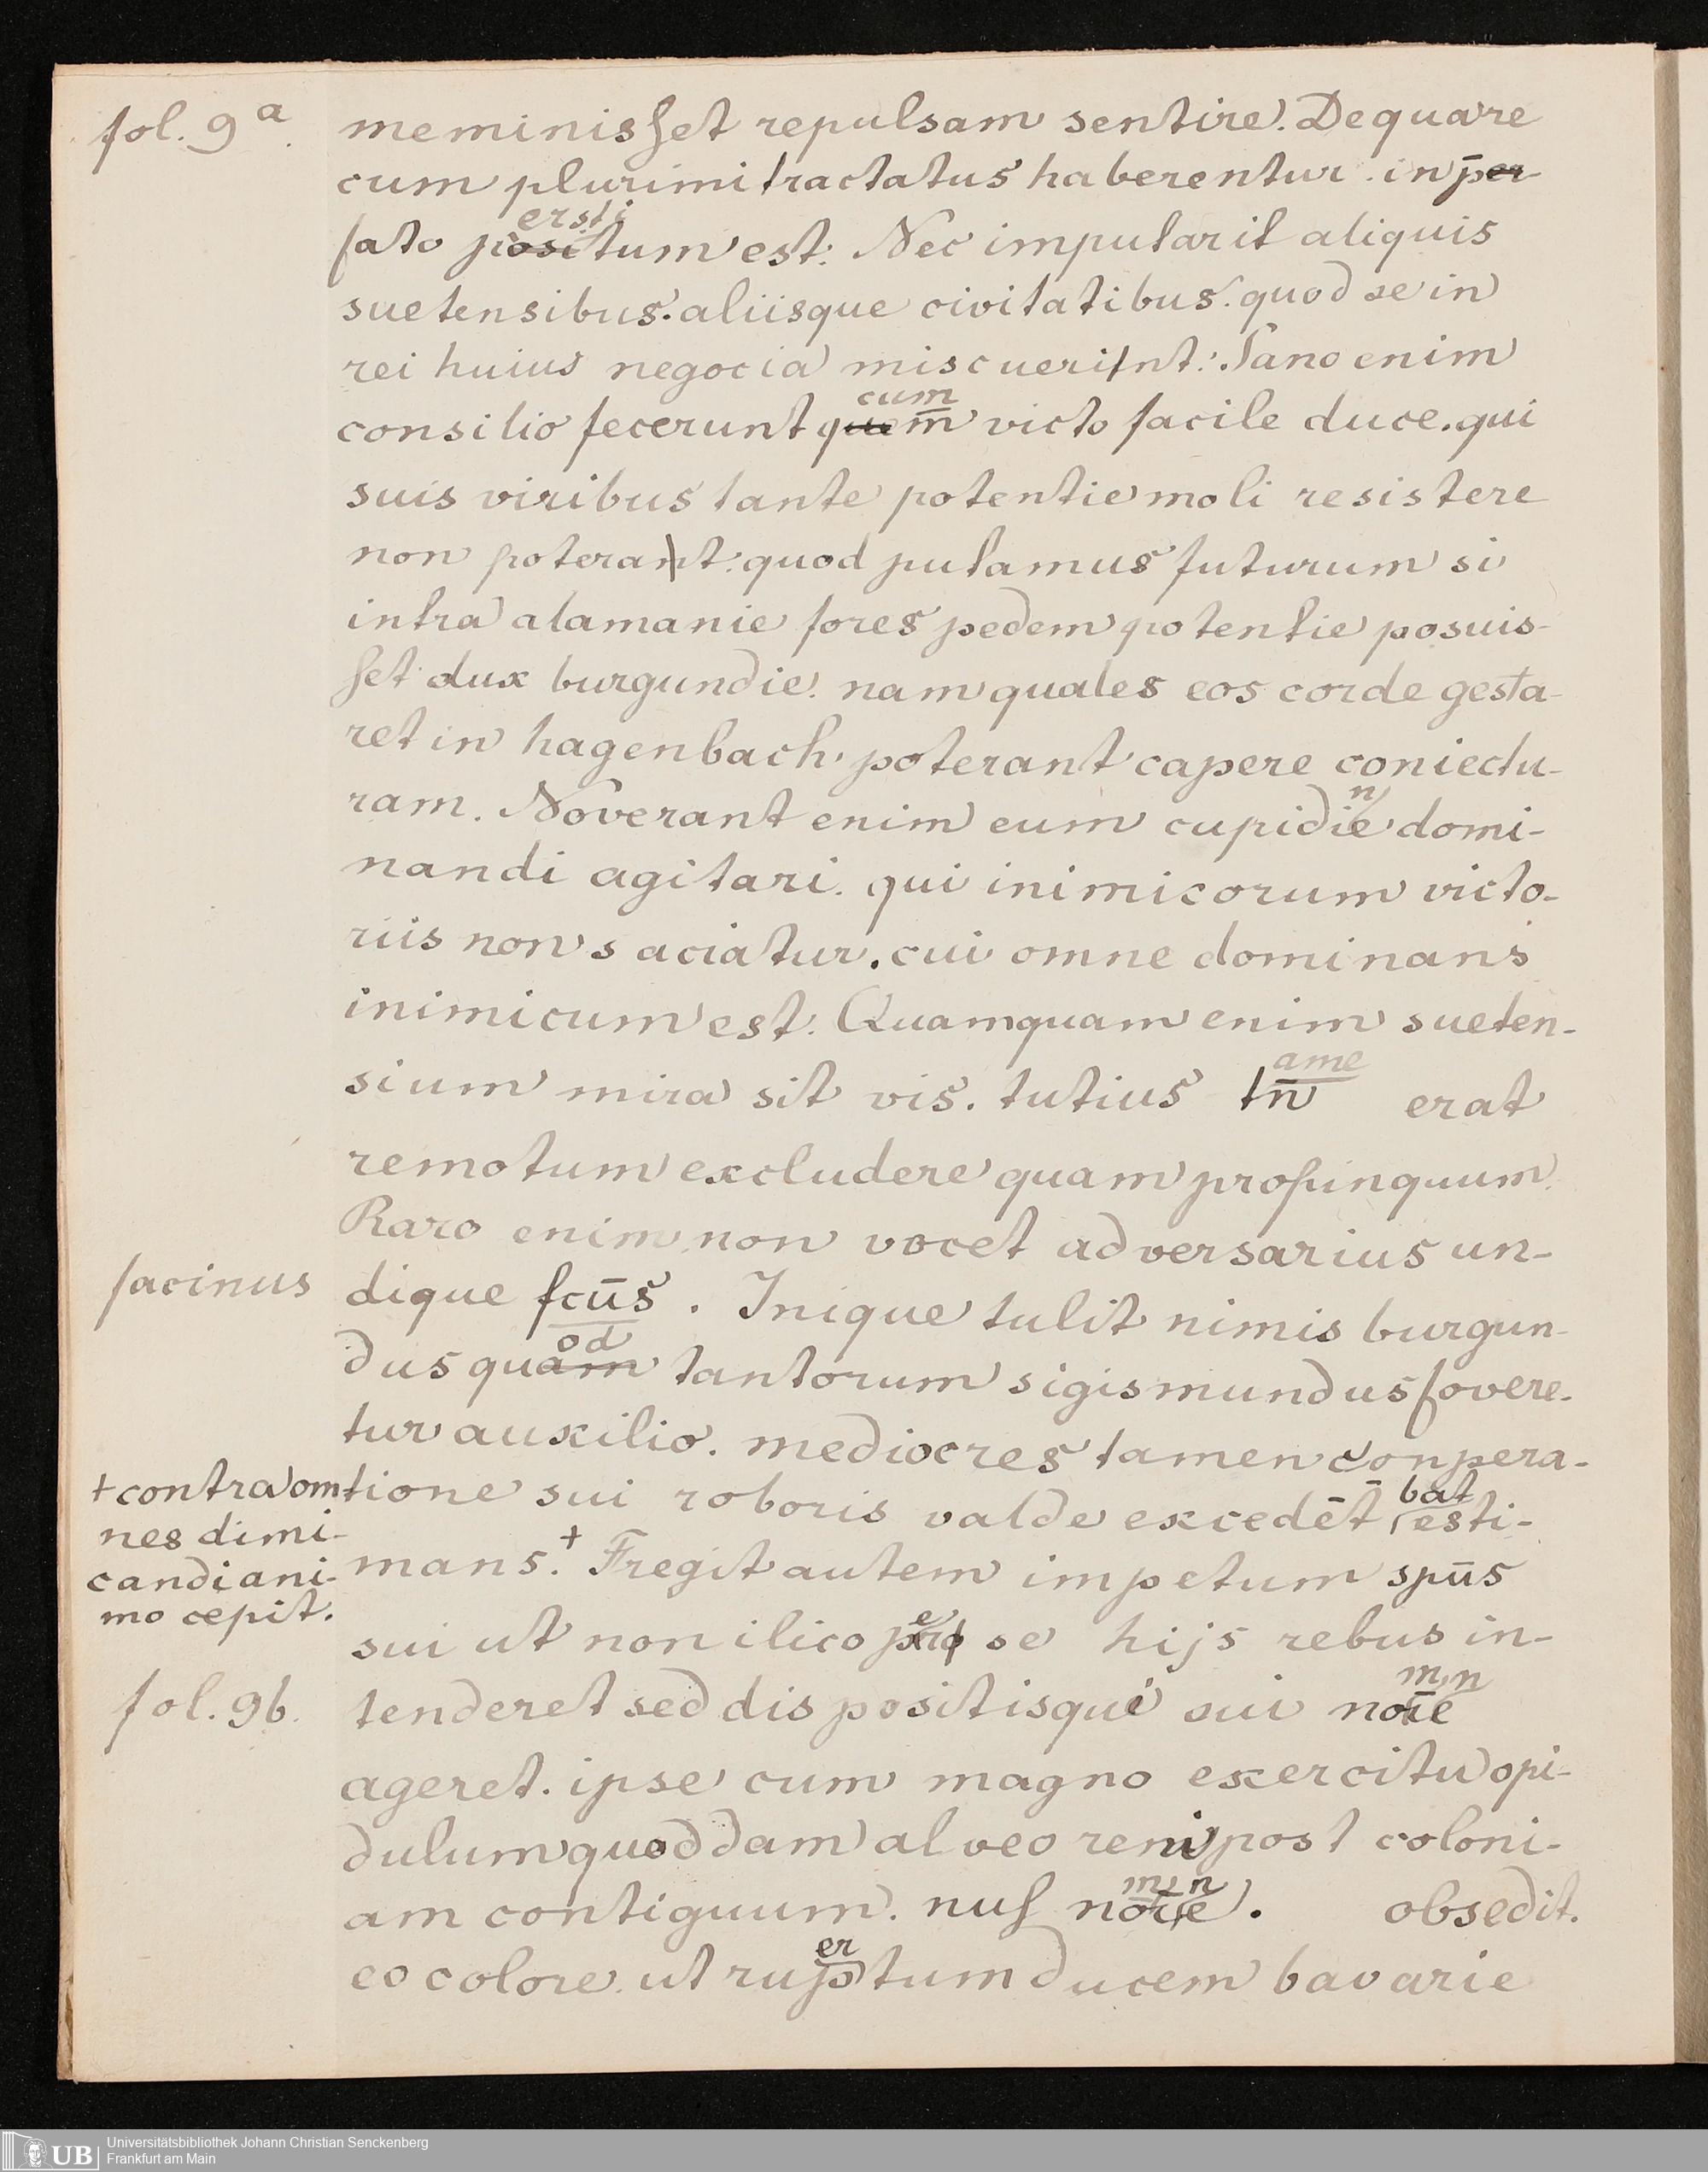 fol. 9a.
meminisset repulsam sentire. De quare
cum plurimi tractatus haberentur. in p̄er
ersti
fato positum est. Nec imputarit aliquis
suetensibus. aliisque civitatibus. quod se in
rei huius negocia miscuerint. Sano enim
cum
consilio fecerunt quem̄ victo facile duce. qui
suis viribus tante potentie moli resistere
non poterant. quod putamus futurum si
intra alamanie fores pedem potentie posuis-
set dux burgundie. nam quales eos corde gesta-
ret in hagenbach. poterant capere coniectu-
n
ram. Noverant enim eum cupidie domi-
nandi agitari. qui inimicorum victo-
riis non saciatur. cui omne dominans
inimicum est. Quamquam enim sueten-
ame
sium mira sit vis. tutius tn̄ erat
remotum excludere quam propinquum.
Raro enim non vocet adversarius un-
facinus
dique fcūs. Inique tulit nimis burgun-
od
dus quam tantorum sigismundus fovere-
tur auxilio. mediocres tamen conpera-
bat
tione sui roboris valde excedēt esti-
mans.+ Fregit autem impetum spūs
+contra om
nes dimi-
candi ani-
mo cepit.
e
sui ut non ilico pro se hijs rebus in-
m n
fol. 9b.
tenderet sed dispositisque sui noīe
ageret. ipse cum magno exercitu opi-
dulum quoddam alveo reni post coloni-
m n
am contiguum. nuſ noīe. obsedit.
er
eo colore. ut rup̄tum ducem bavarie
UB
Universitätsbibliothek Johann Christian Senckenberg
Frankfurt am Main